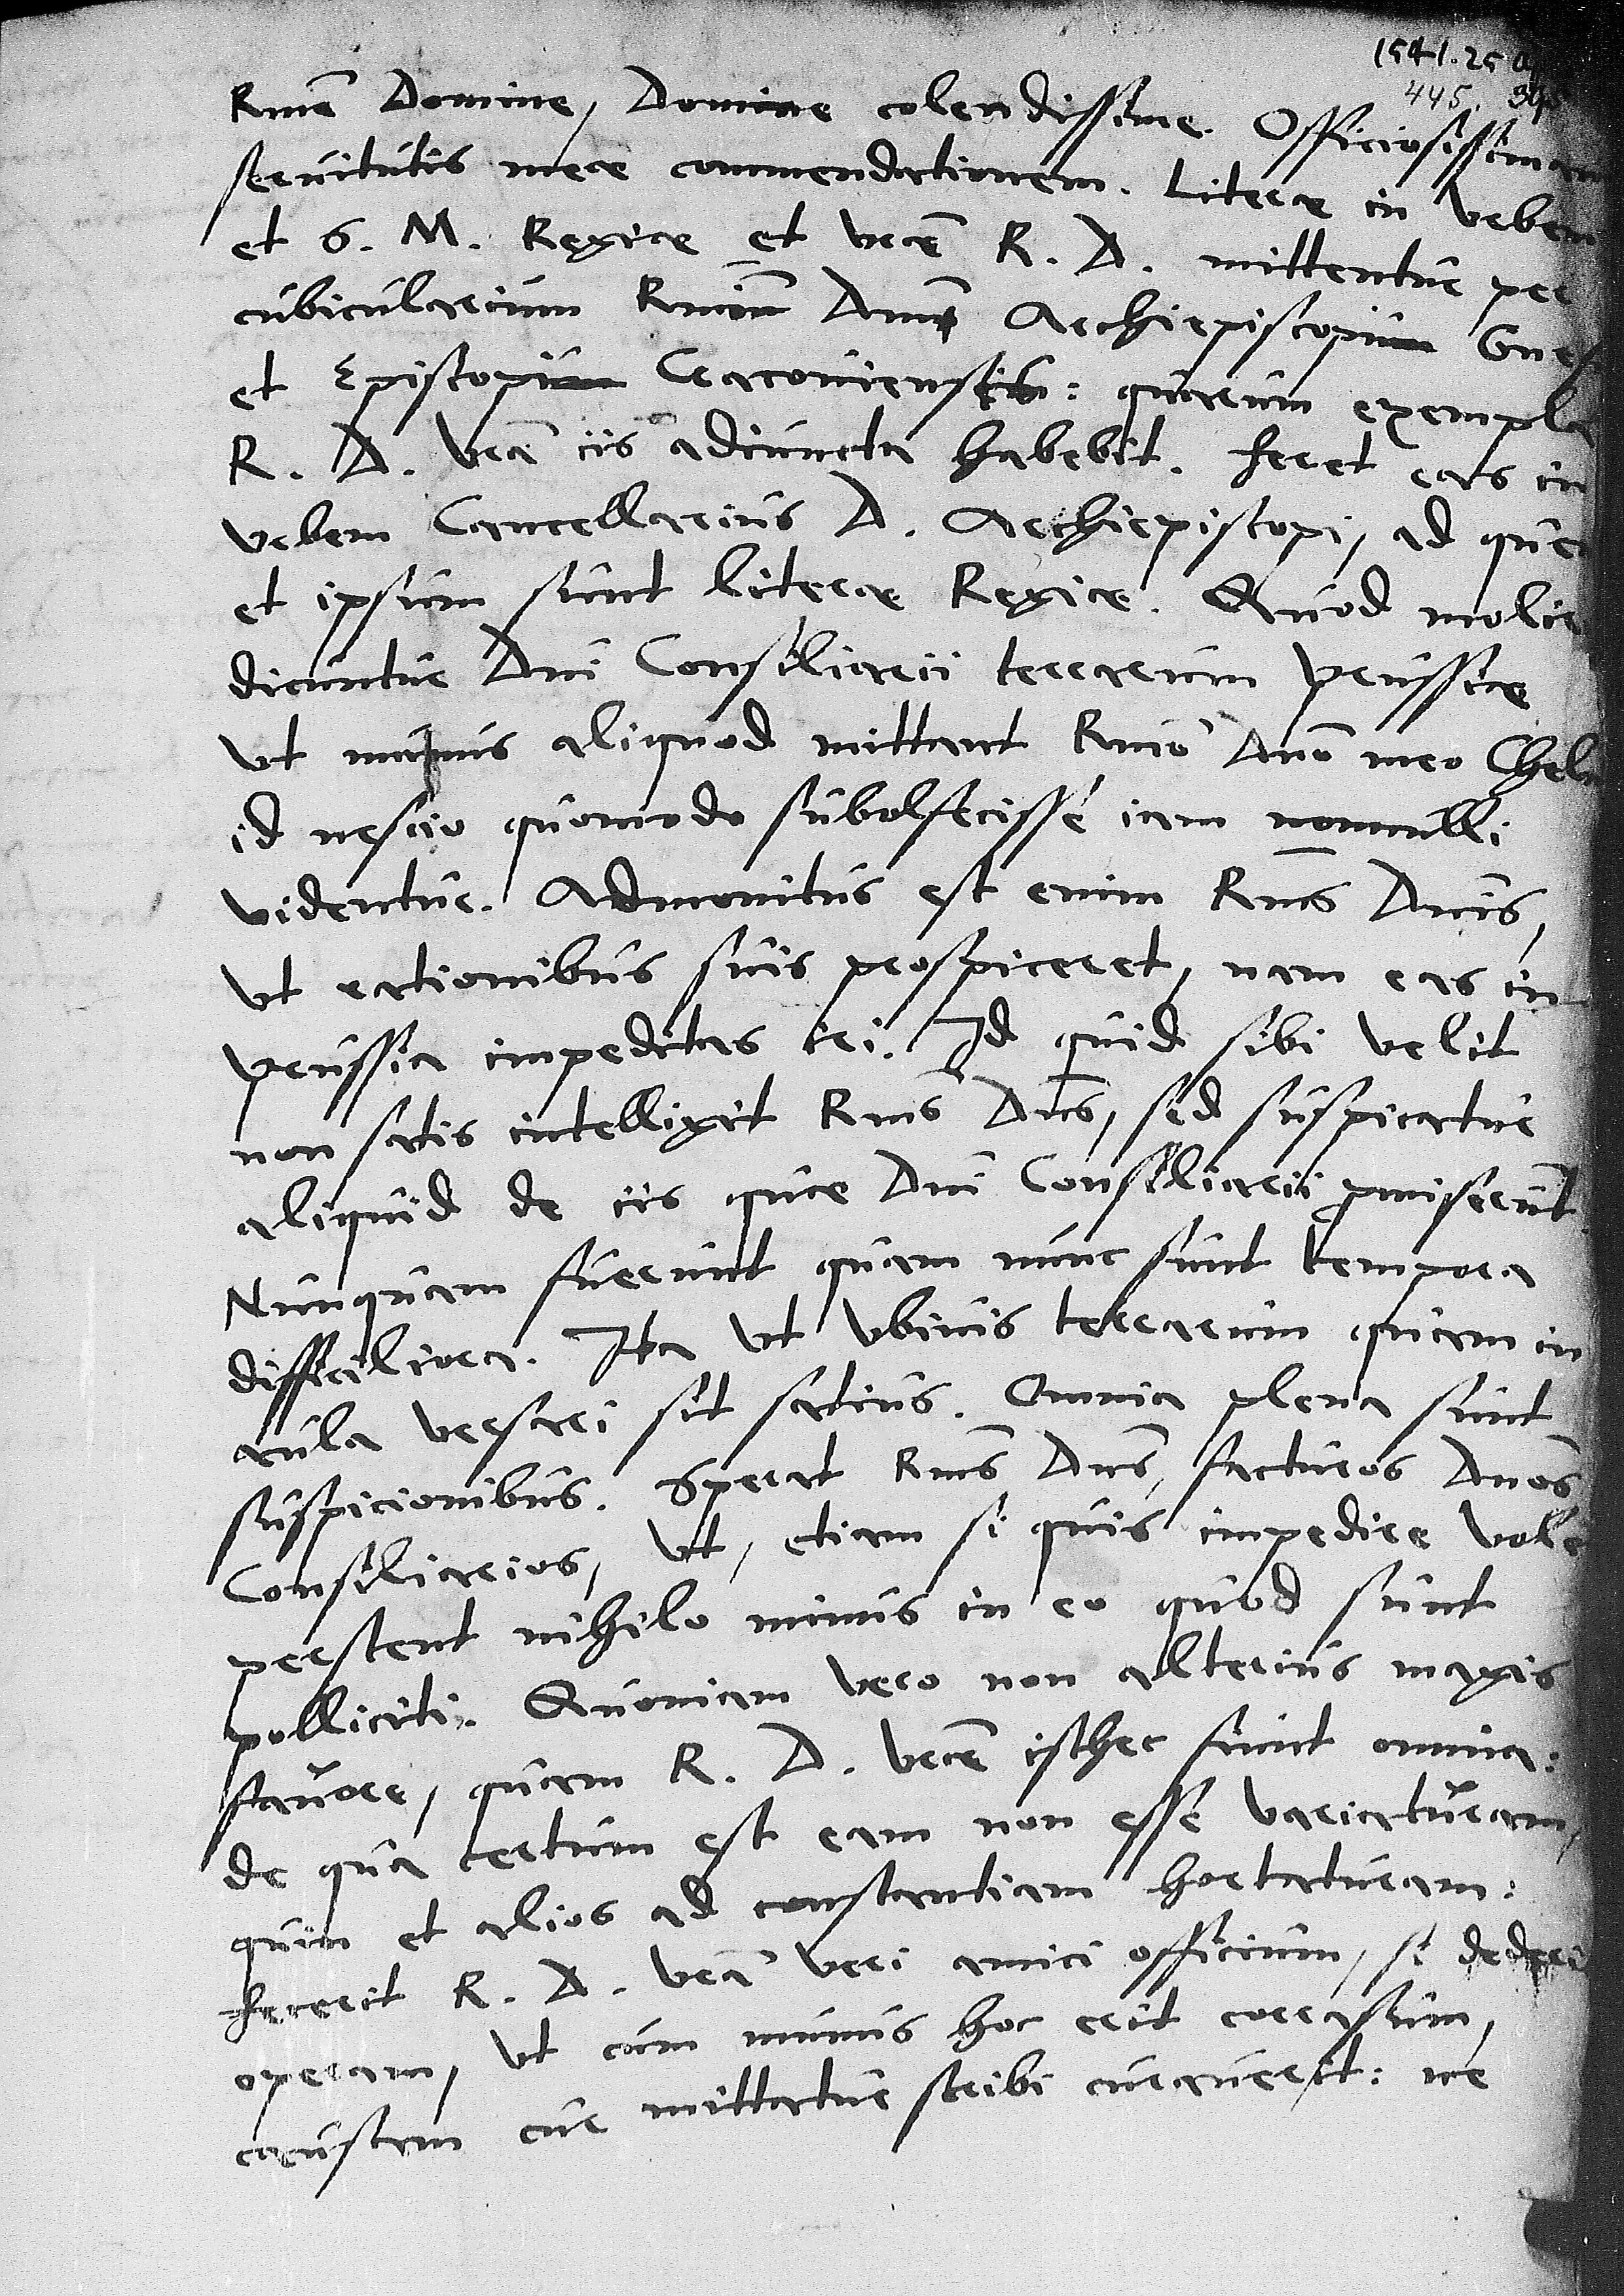 1541. 25 a
445. 395
Rme Domine, Domine colendissime. Officiosissimam
seruitutis meae commendationem. Literae in vrbem
et S. M. Regiae et vrae R. D. mittentur per
cubicularium Rmum Dnum Archiepiscopum Gnes
et Episcopum Cracouiensem: quarum exempla
R. D. vra iis adiuncta habebit. Feret eas in
vrbem Cancellarius D. Archiepiscopi, ad quem
et ipsum sunt literae Regiae. Quod moliri
dicuntur Dni Consiliarii terrarum Prussiae
vt munus aliquod mittant Rmo Dno meo Chelm
id nescio quomodo subolfecisse iam nonnulli
videntur. Admonitus est enim Rmus Dnus,
vt rationibus suis prospiceret, nam eas in
Prussia impeditas iri. Id quid sibi velit
non satis intelligit Rmus Dnus, sed suspicatur
aliquid de iis quae Dni Consiliarii promiserunt.
Nunquam fuerunt quam nunc sunt tempora
difficiliora. Ita vt vbiuis terrarum quam in
aula versari sit satius. Omnia plena sunt
suspicionibus. Sperat Rmus Dnus, facturos Dnos
Consiliarios, vt, etiam si quis impedire vole
perstent nihilo minus in eo quod sunt
polliciti. Quoniam vero non alterius magis
fauore, quam R. D. vrae isthec fiunt omnia:
de qua certum est eam non esse variaturam,
quin et alios ad constantiam hortaturam:
fecerit R. D. vra veri amici officium, si dederit
operam, vt cum munus hoc erit corrasum,
caussam cur mittatur scribi curauerit: ne